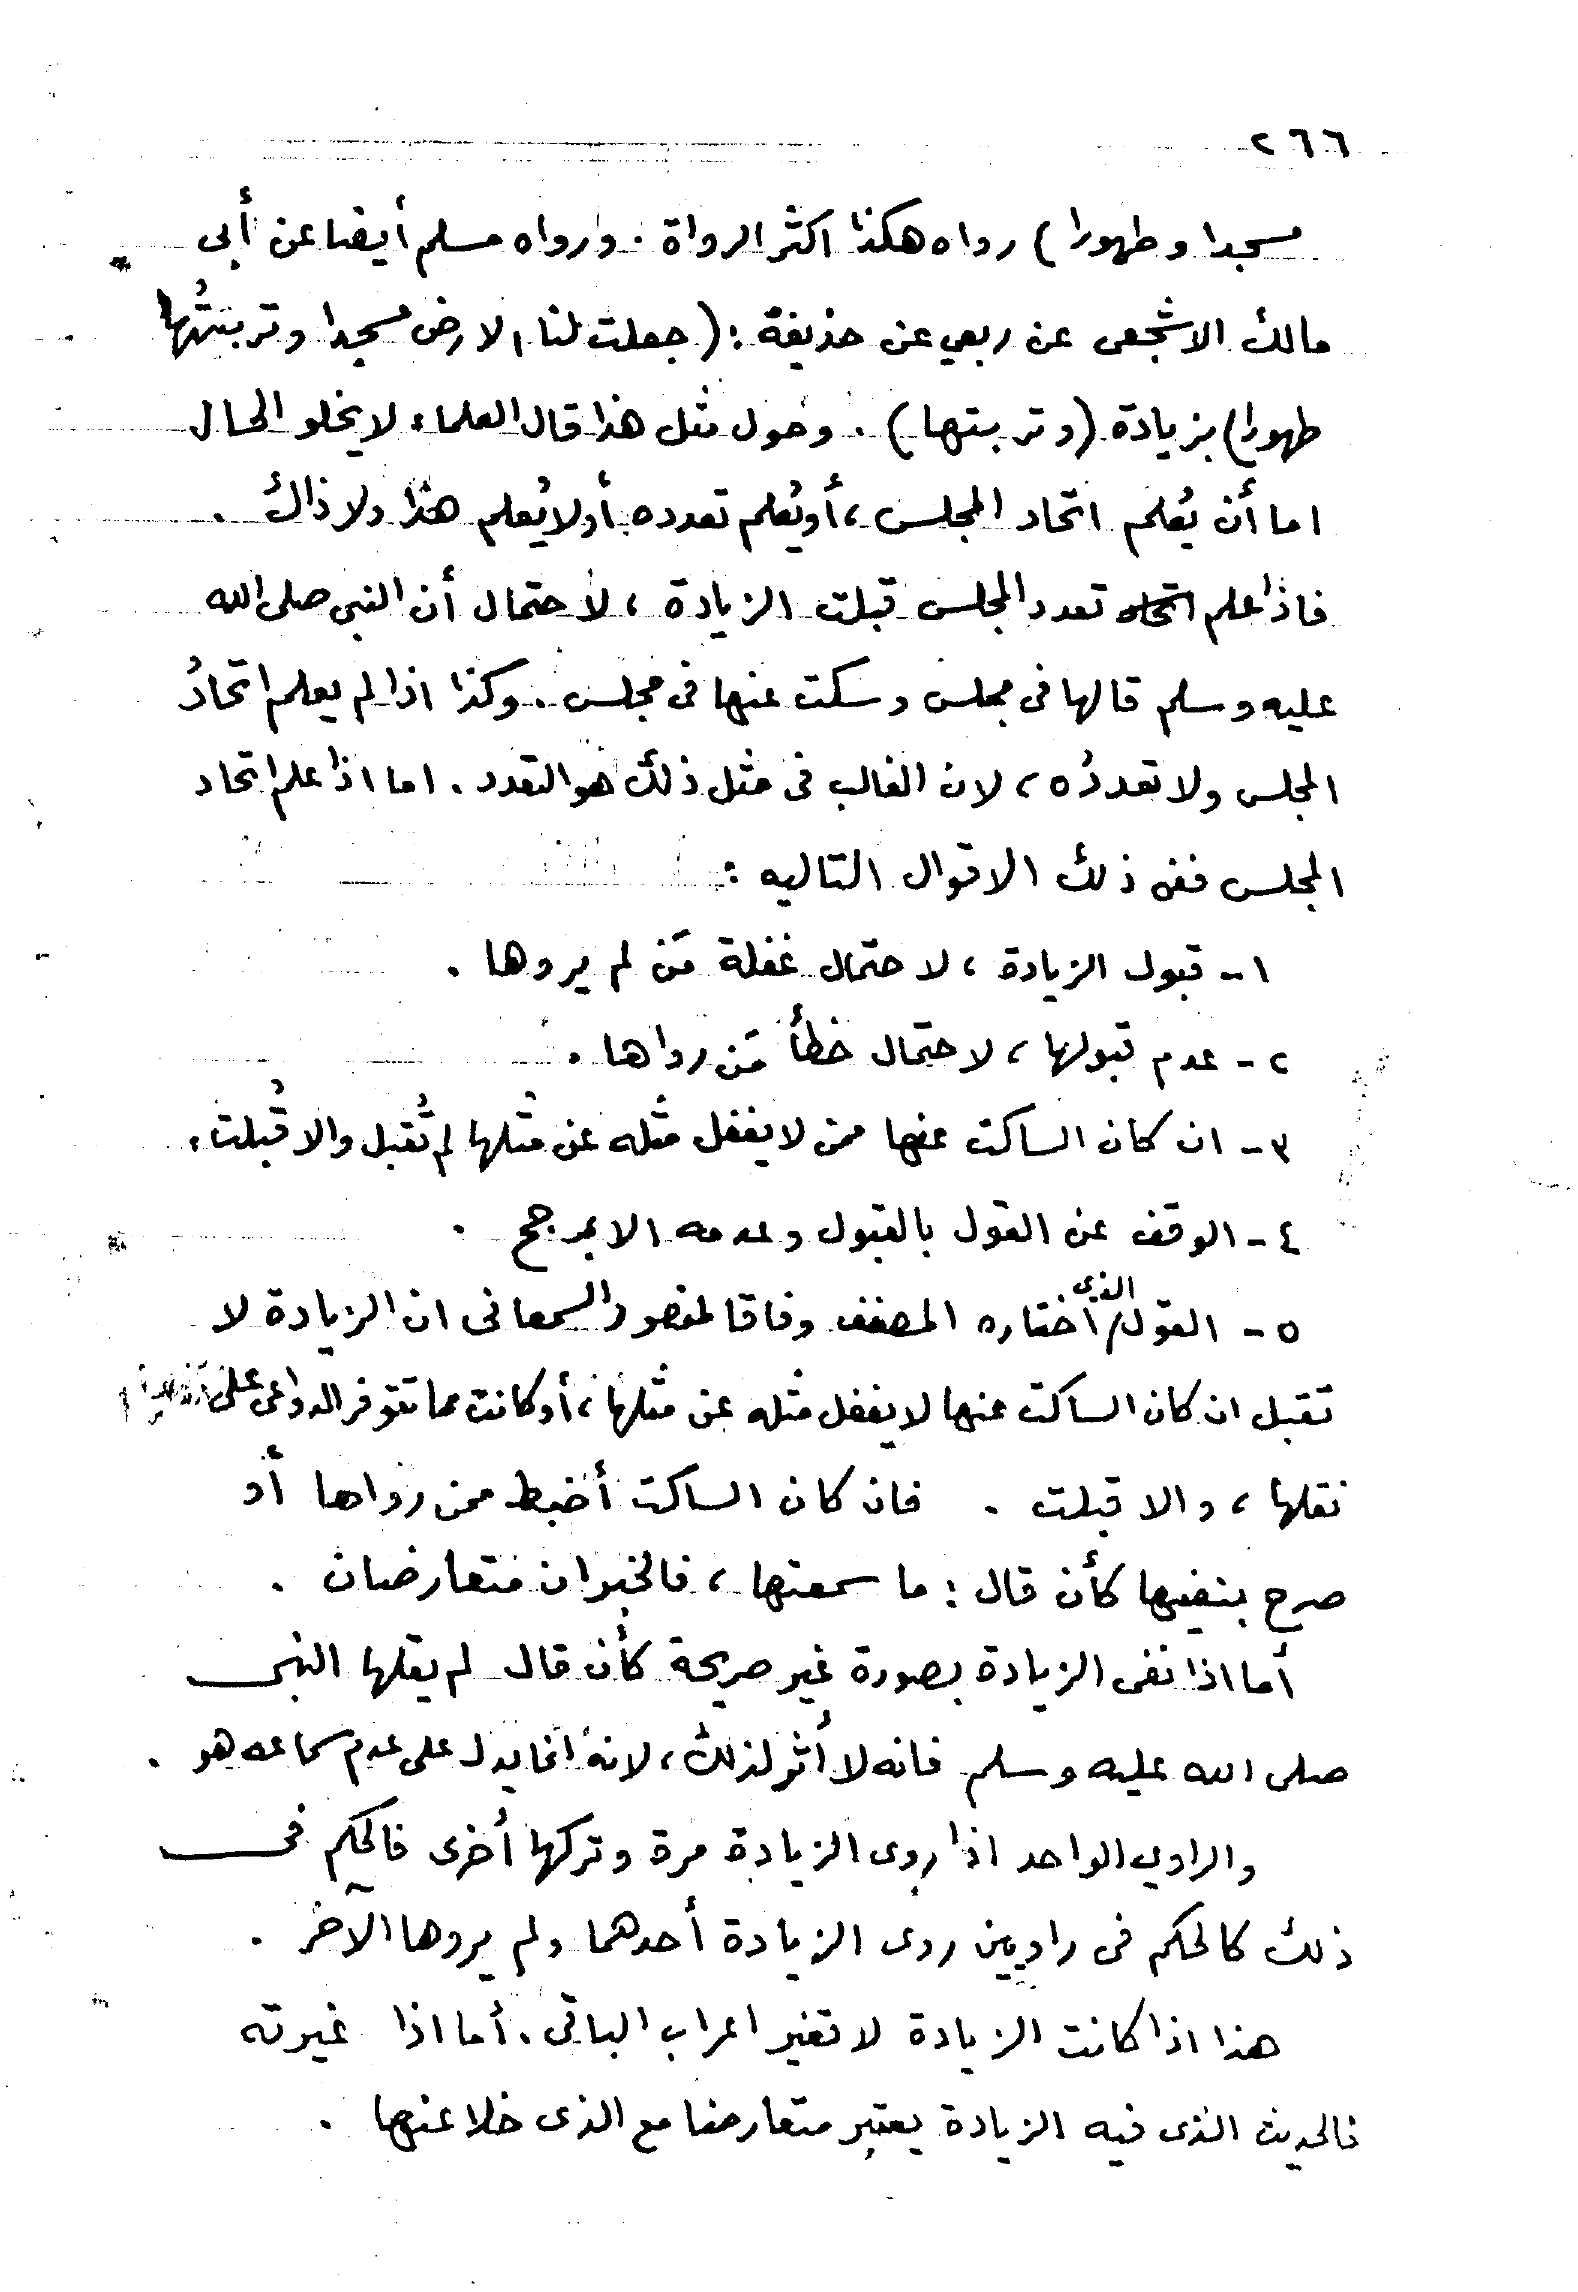 ٢٦٦
مسجدا وطهورا) رواه هكذا اكثر الرواة . ورواه مسلم أيضا عن أبى
مالك الاشجعى عن ربعي عن حذيفة : (جعلت لنا الارض مسجدا وتربتُها
طهورا) بزيادة (وتربتها) . وحول مثل هذا قال العلماء لا يخلو الحال
اما أن يُعلم اتحاد المجلس ، أو يُعلم تعدده أو لا يُعلم هذا ولا ذاك .
فاذا علم تعدد المجلس قبلت الزيادة ، لاحتمال أن النبى صلى الله
عليه وسلم قالها فى مجلس وسكت عنها فى مجلس . وكذا اذا لم يعلم اتحادُ
المجلس ولا تعددُه ، لان الغالب فى مثل ذلك هو التعدد . اما اذا علم اتحاد
المجلس ففى ذلك الاقوال التاليه :
١- قبول الزيادة ، لاحتمال غفلة مَن لم يروها .
٢- عدم قبولها ، لاحتمال خطأ مَن رواها .
٣- ان كان الساكت عنها ممن لا يغفل مثله عن مثلها لم تُقبل والا قُبلت .
٤- الوقف عن القول بالقبول وعدمه الا بمرجح .
٥- القول الذى اختاره المصنف وفاقا لمنصور السمعانى ان الزيادة لا
تقبل ان كان الساكت عنها لا يغفل مثله عن مثلها ، أو كانت مما تتوفر الدواعى على
نقلها ، والا قبلت . فان كان الساكت أضبط ممن رواها أو
صرح بنفيها كأن قال : ما سمعتها ، فالخبران متعارضان .
أما اذا نفى الزيادة بصورة غير صريحة كأن قال لم يقلها النبى
صلى الله عليه وسلم فانه لا أثر لذلك ، لانه انما يدل على عدم سماعه هو .
والراوي الواحد اذا روى الزيادة مرة وتركها أخرى فالحكم فى
ذلك كالحكم فى راويين روى الزيادة أحدهما ولم يروها الآخر .
هذا اذا كانت الزيادة لا تغير اعراب الباقى . أما اذا غيرته
فالحديث الذى فيه الزيادة يعتبر متعارضا مع الذى خلا عنها .